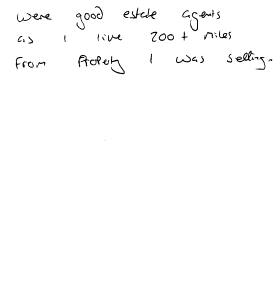 were good estate agents
as I live 200+ miles
from Property I was selling.